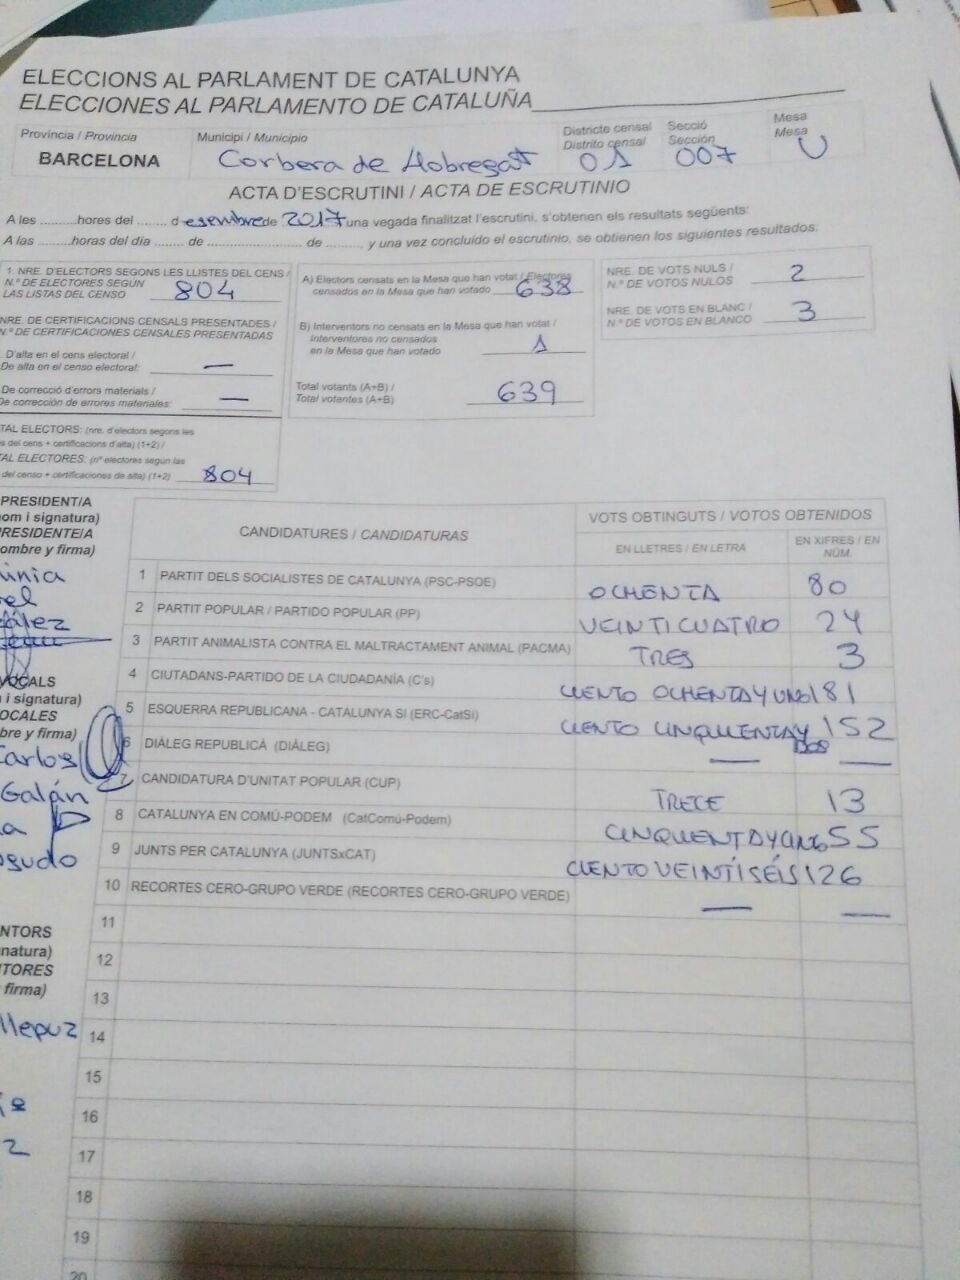 ELECCIONS AL PARLAMENT DE CATALUNYA
ELECCIONES AL PARLAMENTO DE CATALUÑA
Província / Provincia
BARCELONA
Municipi / Municipio
Corbera de Llobregat
Districte censal
Distrito censal
01
Secció
Sección
007
Mesa
Mesa
U
ACTA D'ESCRUTINI / ACTA DE ESCRUTINIO
A les ..........hores del ........ desembre de 2017 una vegada finalitzat l'escrutini, s'obtenen els resultats següents:
A las ..........horas del día ........ de .......................... de ........., y una vez concluido el escrutinio, se obtienen los siguientes resultados:
1. NRE. D'ELECTORS SEGONS LES LLISTES DEL CENS /
N.º DE ELECTORES SEGÚN
LAS LISTAS DEL CENSO 804
NRE. DE CERTIFICACIONS CENSALS PRESENTADES /
N.º DE CERTIFICACIONES CENSALES PRESENTADAS
D'alta en el cens electoral /
De alta en el censo electoral: —
De correcció d'errors materials /
De corrección de errores materiales: —
TAL ELECTORS: (nre. d'electors segons les
s del cens + certificacions d'alta) (1+2) /
TAL ELECTORES: (nº electores según las
del censo + certificaciones de alta) (1+2) 804
A) Electors censats en la Mesa que han votat / Electores
censados en la Mesa que han votado 638
B) Interventors no censats en la Mesa que han votat /
Interventores no censados
en la Mesa que han votado 1
Total votants (A+B) /
Total votantes (A+B) 639
NRE. DE VOTS NULS /
N.º DE VOTOS NULOS 2
NRE. DE VOTS EN BLANC /
N.º DE VOTOS EN BLANCO 3
PRESIDENT/A
om i signatura)
RESIDENTE/A
ombre y firma)
VOCALS
i signatura)
OCALES
bre y firma)
Carlos
Galán
NTORS
natura)
TORES
firma)
CANDIDATURES / CANDIDATURAS
VOTS OBTINGUTS / VOTOS OBTENIDOS
EN LLETRES / EN LETRA
EN XIFRES / EN NÚM.
1 PARTIT DELS SOCIALISTES DE CATALUNYA (PSC-PSOE) OCHENTA 80
2 PARTIT POPULAR / PARTIDO POPULAR (PP) VEINTICUATRO 24
3 PARTIT ANIMALISTA CONTRA EL MALTRACTAMENT ANIMAL (PACMA) TRES 3
4 CIUTADANS-PARTIDO DE LA CIUDADANÍA (C's) CIENTO OCHENTA Y UNO 181
5 ESQUERRA REPUBLICANA - CATALUNYA SÍ (ERC-CatSí) CIENTO CINQUENTA Y DOS 152
6 DIÀLEG REPUBLICÀ (DIÀLEG) — —
7 CANDIDATURA D'UNITAT POPULAR (CUP) TRECE 13
8 CATALUNYA EN COMÚ-PODEM (CatComú-Podem) 55
9 JUNTS PER CATALUNYA (JUNTSxCAT) CIENTO VEINTÍSÉIS 126
10 RECORTES CERO-GRUPO VERDE (RECORTES CERO-GRUPO VERDE) — —
11
12
13
14
15
16
17
18
19
20